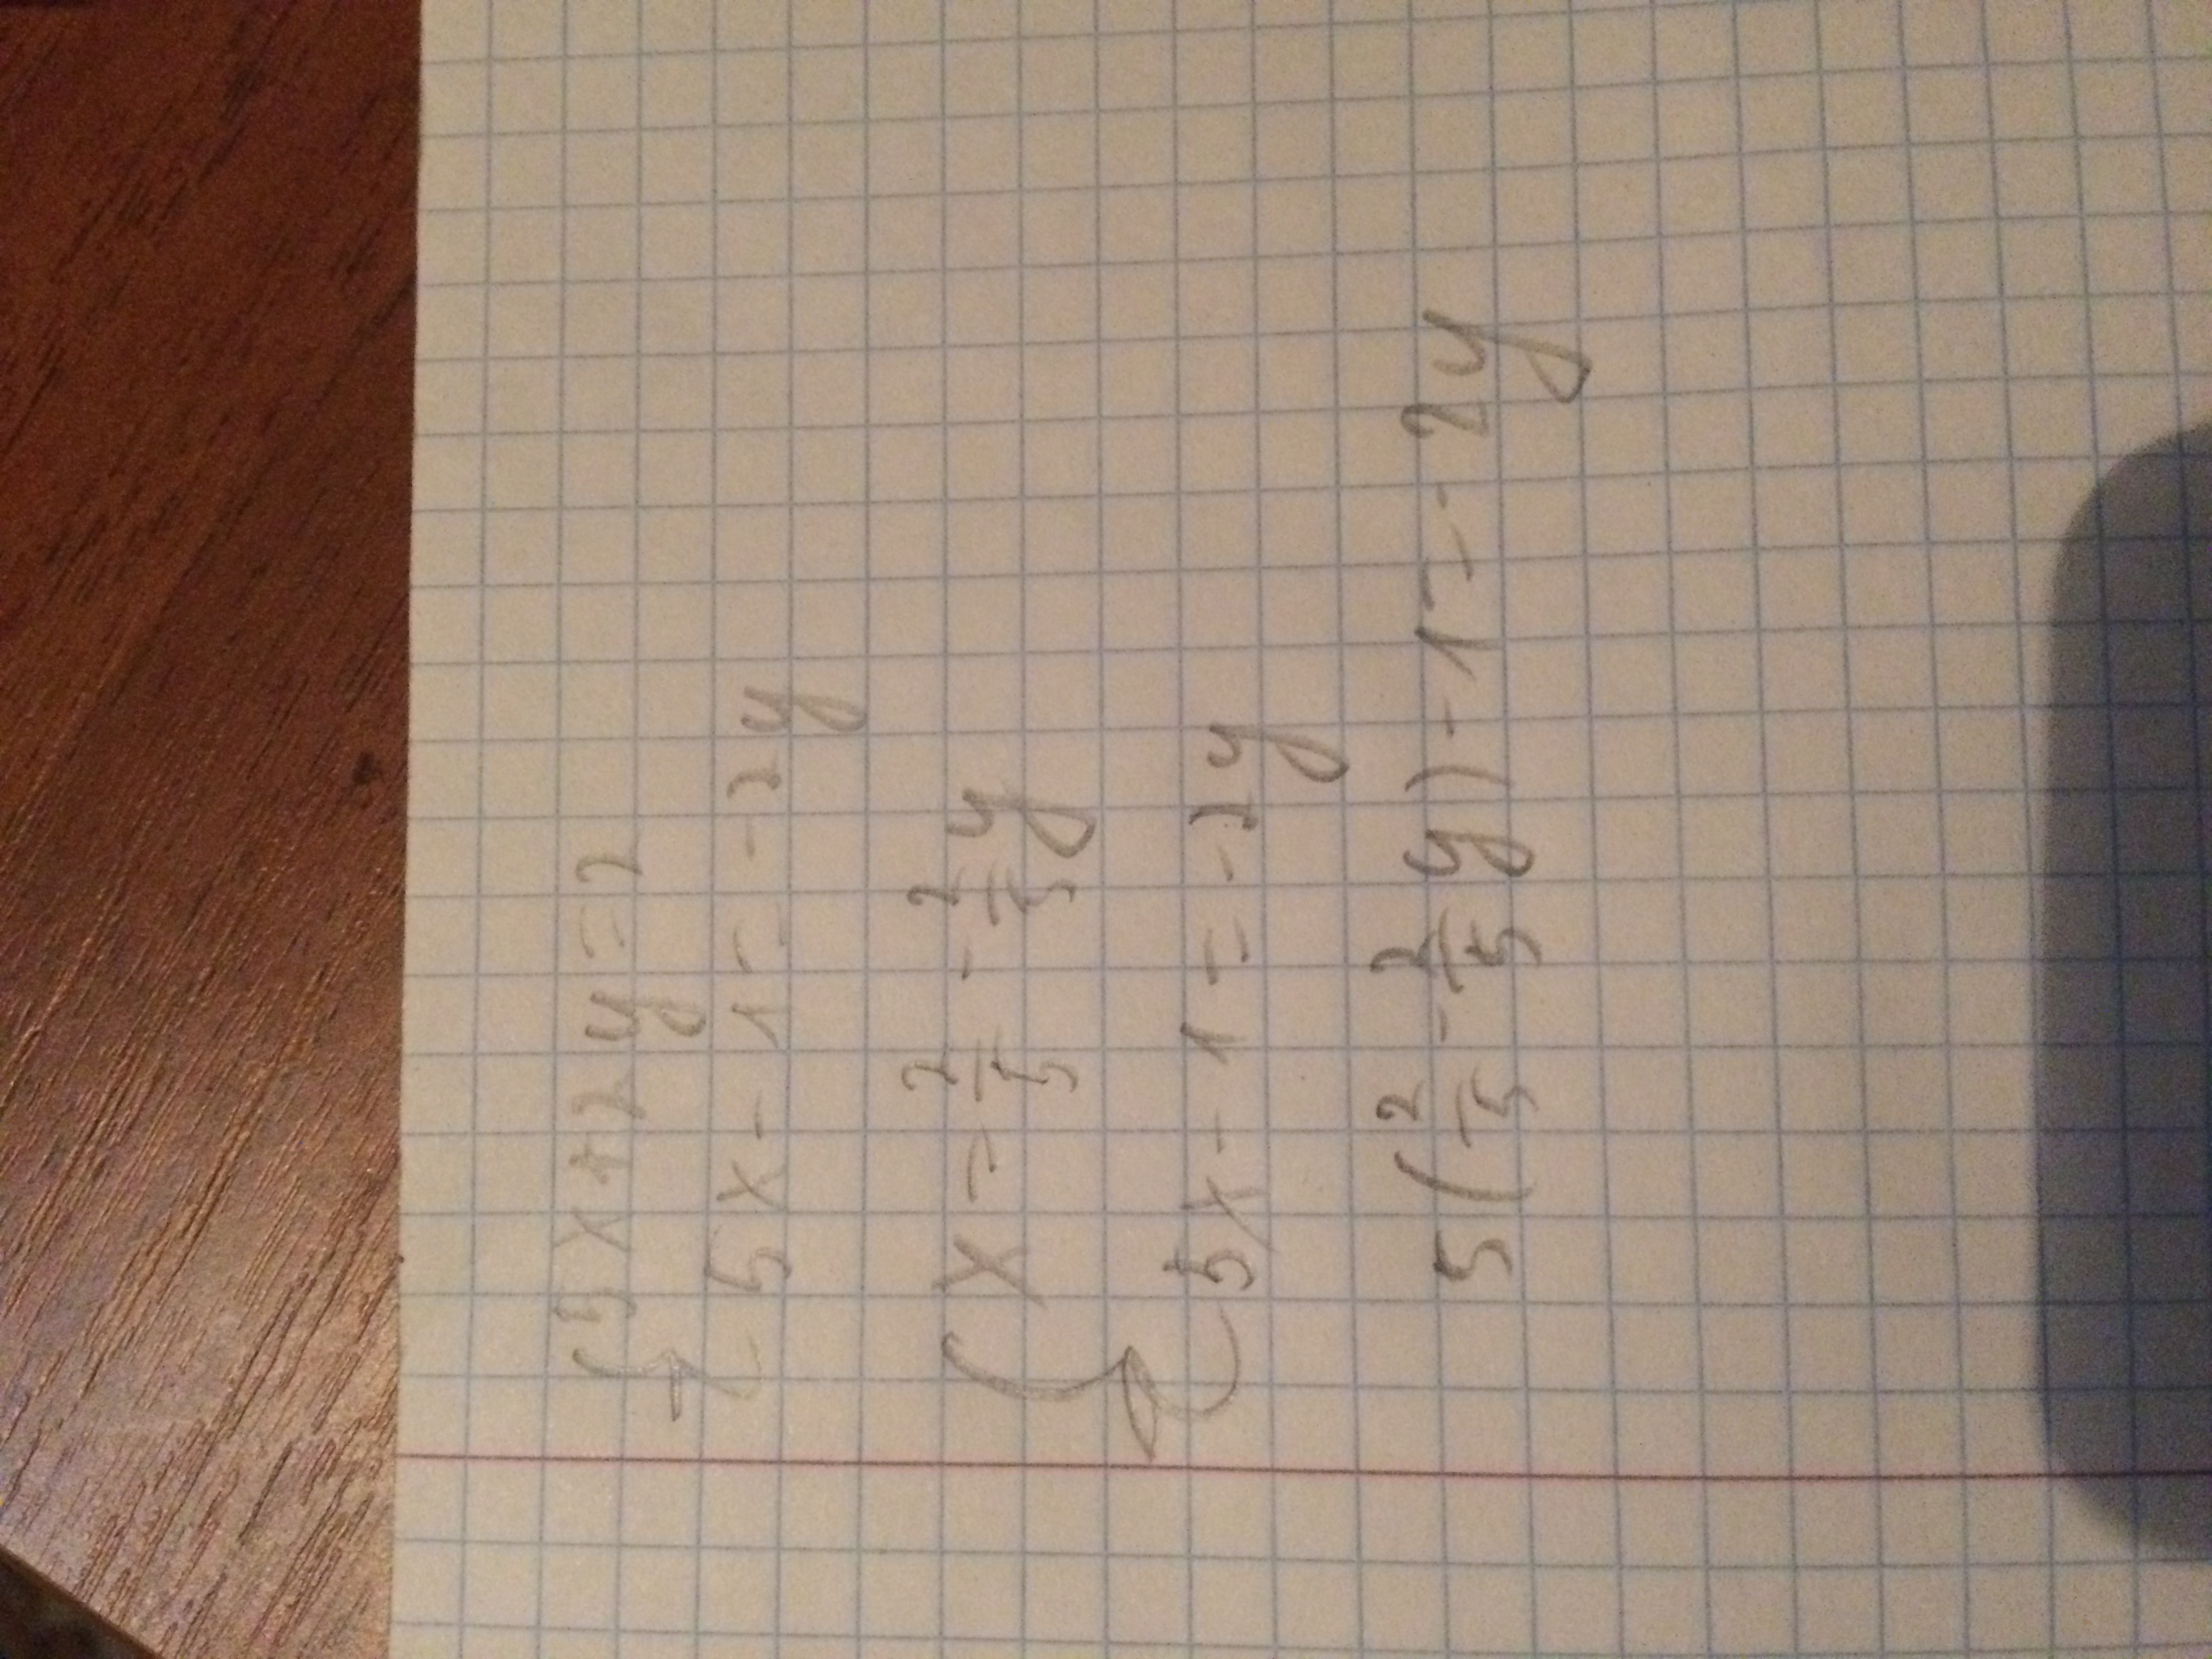 {5x+2y=2
5x-1=-2y
{x=2/5-2/5y
5x-1=-2y
5(2/5-2/5y)-1=-2y